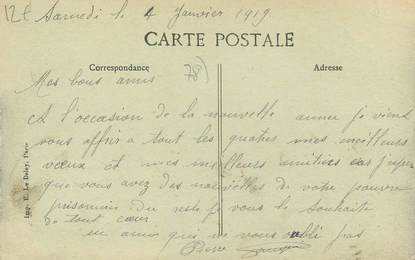 Samedi le 4 Janvier 1919
CARTE POSTALE
Correspondance
Adresse
78)
Mes bons amis
A l'occasion de la nouvelle année je viens
vous offrir a tout les quatres mes meilleurs
vœux et mes meilleurs amitiers
que vous avez des nouvelles de votre pauvre
prisonnier du reste je vous le souhaite
de tout cœur
un amis qui ne vous oubli pas
Pierre
Imp. E. Le Deley, Paris